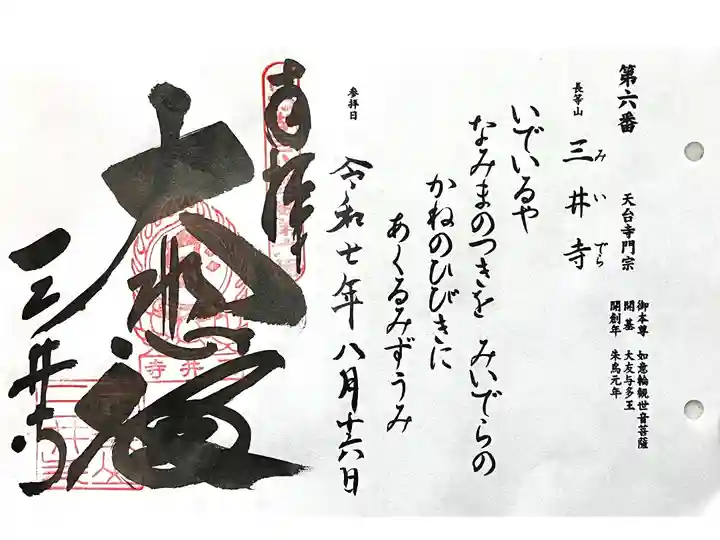 第六番
長等山 三井寺
みいでら
天台寺門宗
御本尊 如意輪観世音菩薩
開基 大友与多王
開創年 朱鳥元年
いでいるや
なみまのつきを みいでらの
かねのひびきに
あくるみずうみ
参拝日 令和七年八月十六日
奉拝
大悲殿
三井寺